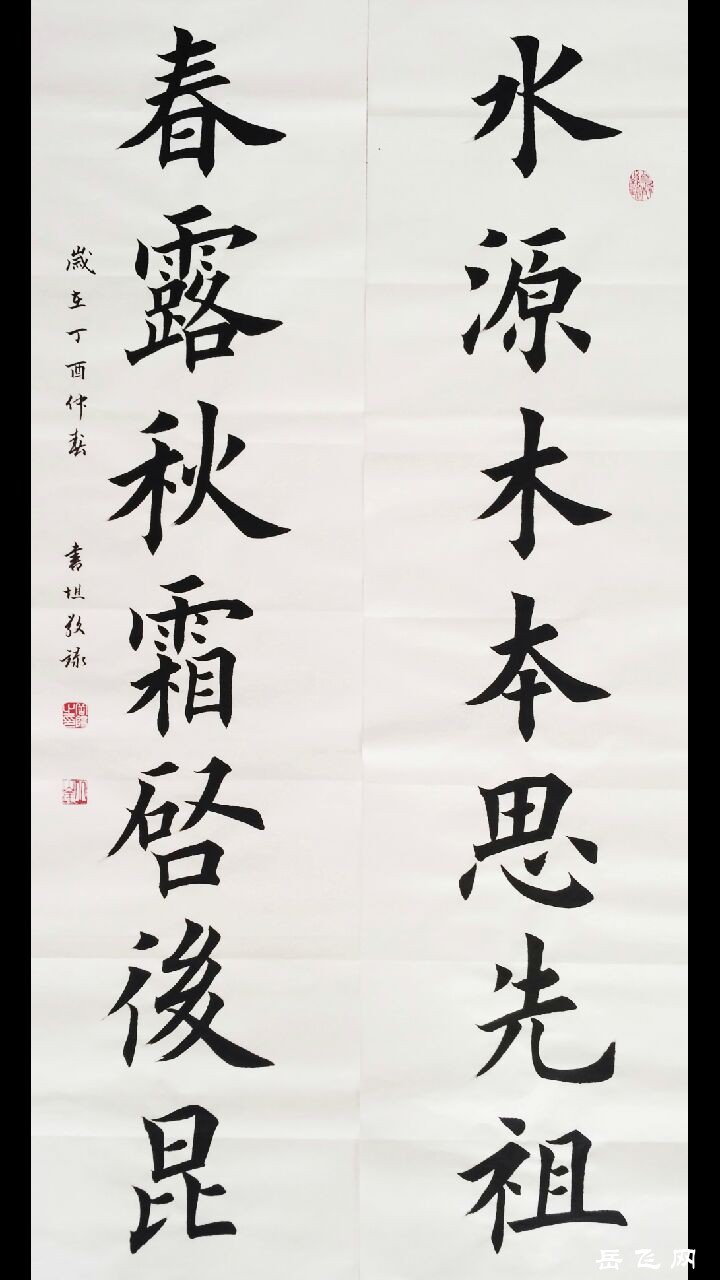 水源木本思先祖
春露秋霜啓後昆
歲在丁酉仲春
書坦敬錄
岳飞网